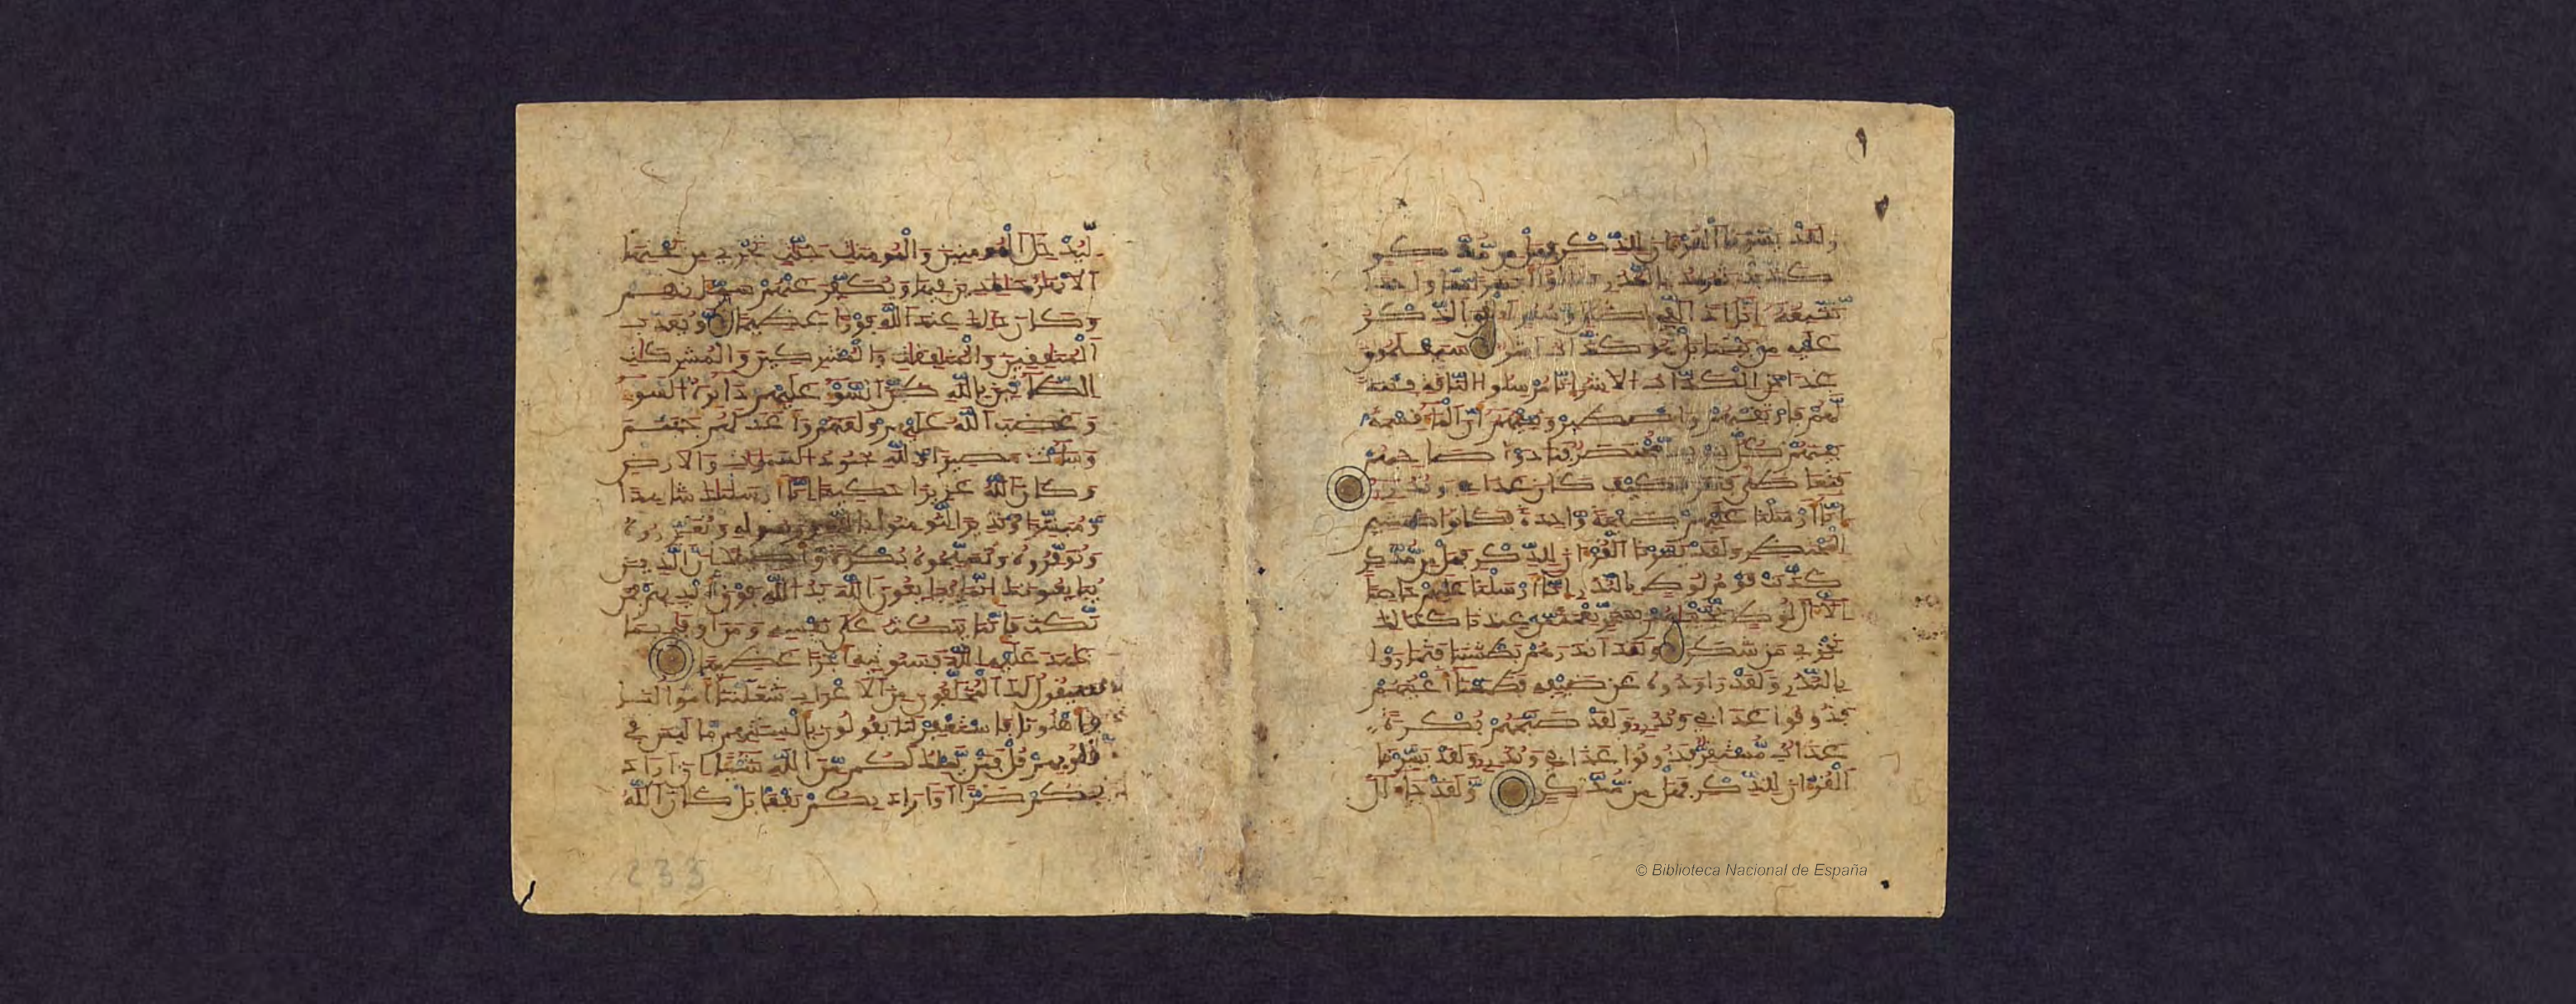 ولقد يسرنا القرءان للذكر فهل من مدكر
كذبت ثمود بالنذر فقالوا أبشرا منا واحدا
نتبعه إنا إذا لفي ضلل وسعر أءلقي الذكر
عليه من بيننا بل هو كذاب اشر سيعلمون
غدا من الكذاب الاشر إنا مرسلوا الناقة فتنة
لهم فارتقبهم واصطبر ونبئهم أن الماء قسمة
بينهم كل شرب محتضر فنادوا صاحبهم
فتعاطى فعقر فكيف كان عذابي ونذر
إنا أرسلنا عليهم صيحة واحدة فكانوا كهشيم
المحتظر ولقد يسرنا القرءان للذكر فهل من مدكر
كذبت قوم لوط بالنذر إنا أرسلنا عليهم حاصبا
الا ءال لوط نجينهم بسحر نعمة من عندنا كذلك
نجزي من شكر ولقد انذرهم بطشتنا فتماروا
بالنذر ولقد راودوه عن ضيفه فطمسنا أعينهم
فذوقوا عذابي ونذر ولقد صبحهم بكرة
عذاب مستقر فذوقوا عذابي ونذر ولقد يسرنا
القرءان للذكر فهل من مدكر ولقد جاء ال
ليدخل المومنين والمومنت جنت تجري من تحتها
الانهر خلدين فيها ويكفر عنهم سيئاتهم
وكان ذلك عند الله فوزا عظيما ويعذب
المنفقين والمنفقت والمشركين والمشركت
الظانين بالله ظن السوء عليهم دائرة السوء
وغضب الله عليهم ولعنهم وأعد لهم جهنم
وساءت مصيرا ولله جنود السموت والارض
وكان الله عزيزا حكيما إنا أرسلنك شاهدا
ومبشرا ونذيرا لتومنوا بالله ورسوله وتعزروه
وتوقروه وتسبحوه بكرة وأصيلا إن الذين
يبايعونك إنما يبايعون الله يد الله فوق أيديهم فمن
نكث فإنما ينكث على نفسه ومن أوفى بما
عهد عليه الله فسنوتيه أجرا عظيما
سيقول لك المخلفون من الاعراب شغلتنا أمولنا
وأهلونا فاستغفر لنا يقولون بألسنتهم ما ليس في
قلوبهم قل فمن يملك لكم من الله شيئا إن أراد
بكم ضرا أو أراد بكم نفعا بل كان الله
233
© Biblioteca Nacional de España